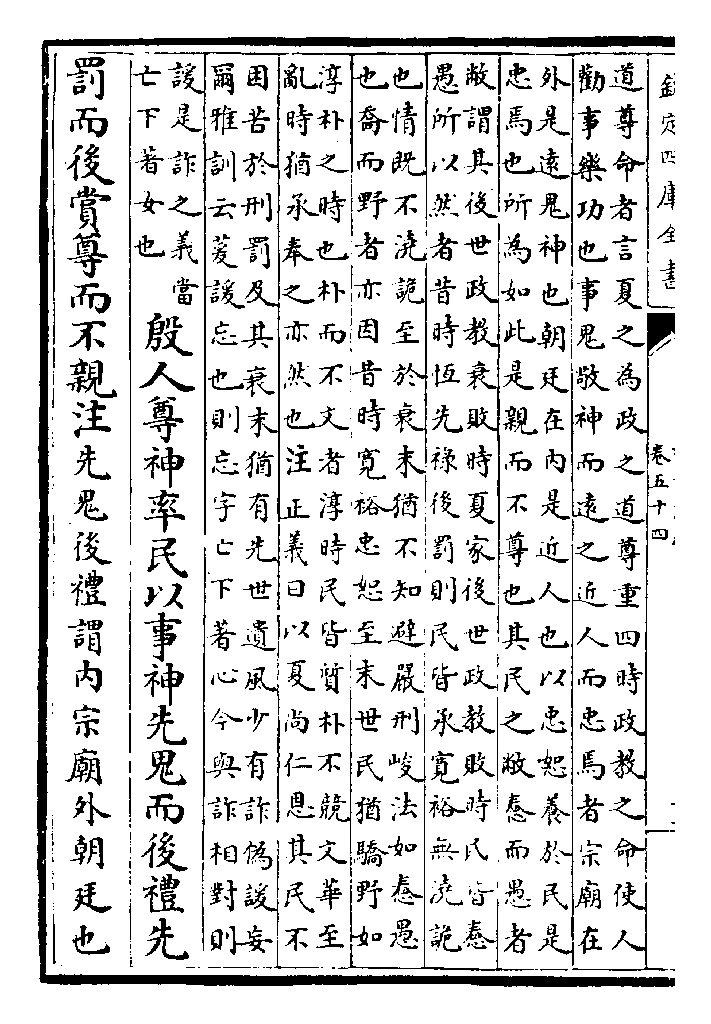 欽定四庫全書
卷五十四
道尊命者言夏之為政之道尊重四時政教之命使人
勸事樂功也事鬼敬神而遠之近人而忠焉者宗廟在
外是遠鬼神也朝廷在内是近人也以忠恕養於民是
忠焉也所為如此是親而不尊也其民之敝惷而愚者
敝謂其後世政教衰敗時夏家後世政教敗時民皆惷
愚所以然者昔時恆先祿後罰則民皆承寛裕無澆詭
也情既不澆詭至於衰末猶不知避嚴刑峻法如惷愚
也喬而野者亦因昔時寛裕忠恕至末世民猶驕野如
淳朴之時也朴而不文者淳時民皆質朴不競文華至
亂時猶承奉之亦然也注正義曰以夏尚仁恩其民不
困苦於刑罰及其衰末猶有先世遺風少有詐偽諼妄
爾雅訓云萲諼忘也則忘字亡下著心今與詐相對則
諼是詐之義當
亡下著女也
殷人尊神率民以事神先鬼而後禮先
罰而後賞尊而不親注先鬼後禮謂内宗廟外朝廷也